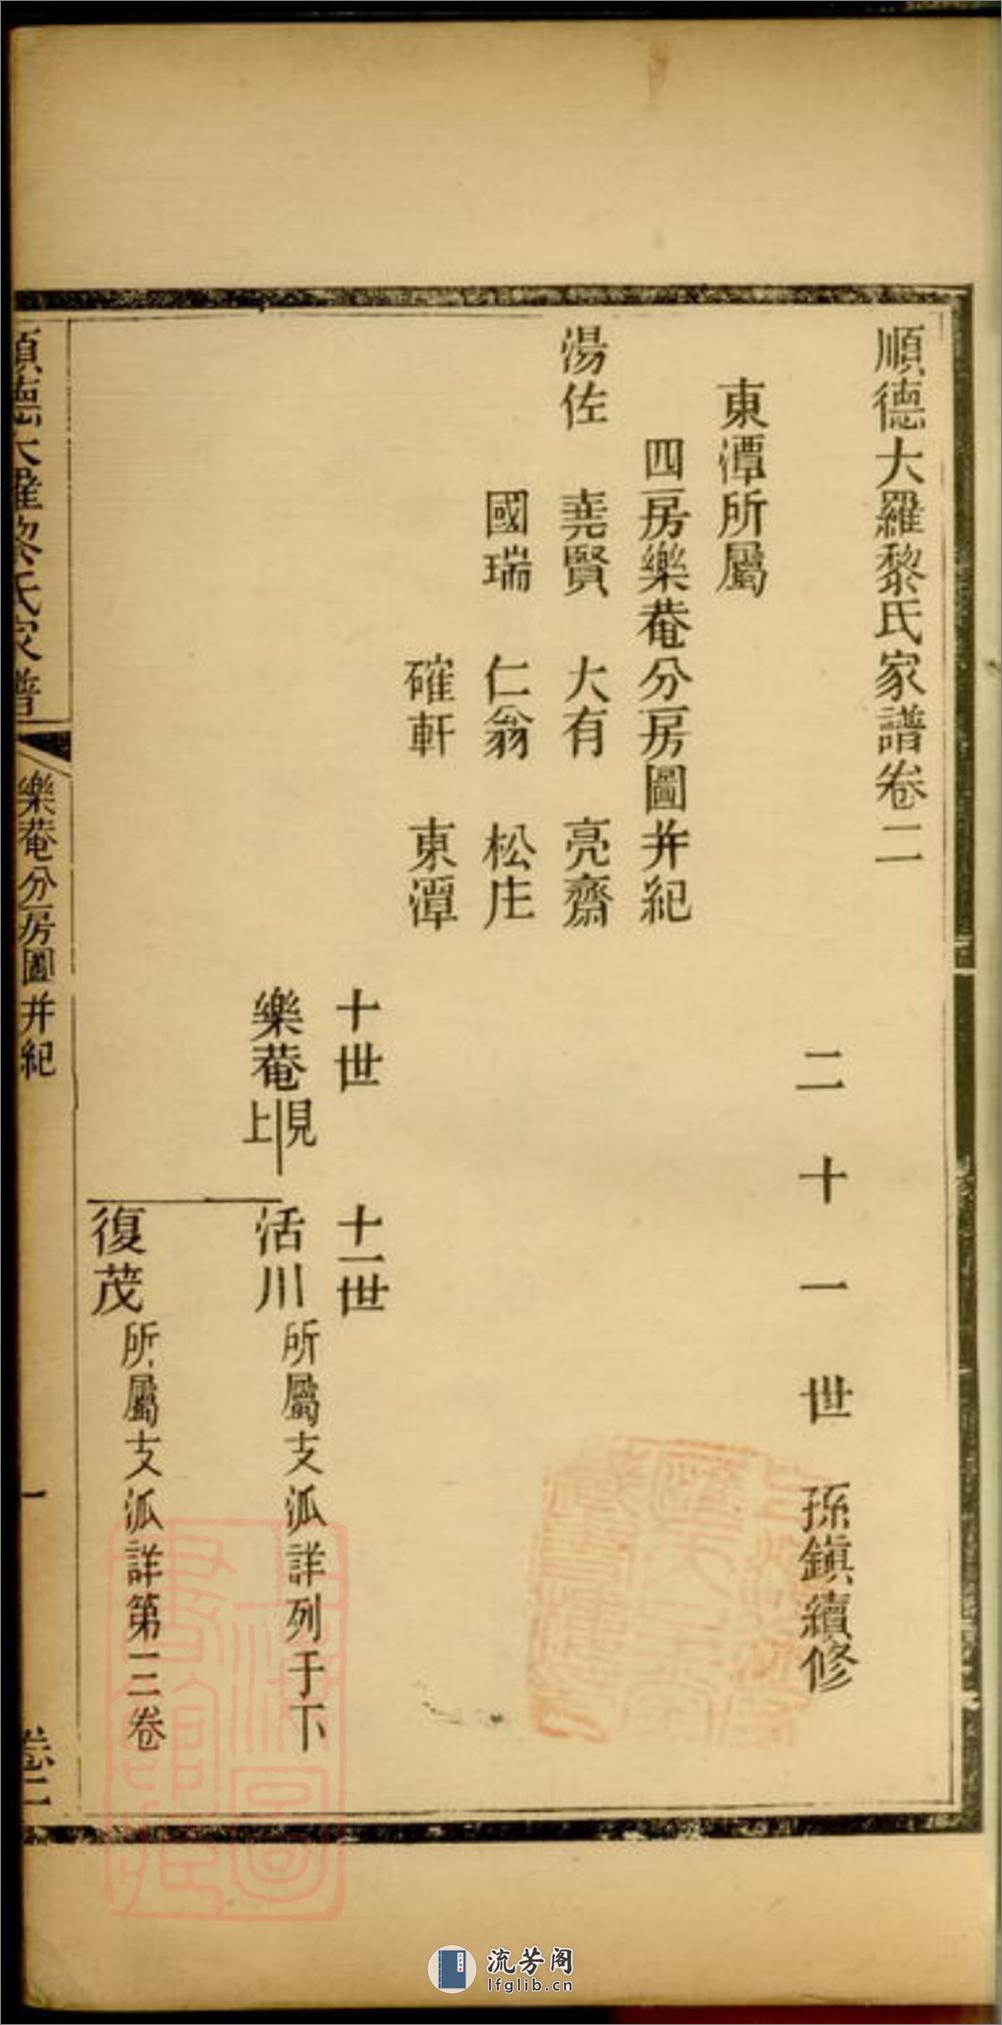 順德大羅黎氏家譜卷二
二十一世孫鎮續修
東潭所屬
四房樂菴分房圖并紀
湯佐 堯賢 大有 亮齋
國瑞 仁翁 松庄
確軒 東潭
十世 十一世
樂菴見上 活川所屬支派詳列于下
復茂所屬支派詳第三卷
順德大羅黎氏家譜 樂菴分房圖并紀 一 卷二
上海圖書館藏
流芳阁
lfglib.cn